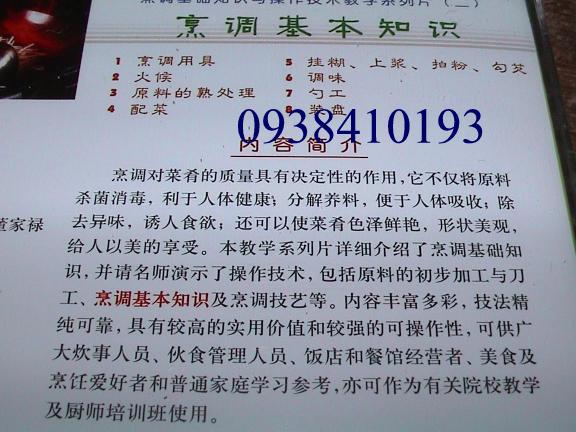 烹调基础知识与操作技术教学系列片（二）
烹调基本知识
1 烹调用具
2 火候
3 原料的熟处理
4 配菜
5 挂糊、上浆、拍粉、勾芡
6 调味
7 勺工
8 装盘
0938410193
内容简介
烹调对菜肴的质量具有决定性的作用，它不仅将原料
杀菌消毒，利于人体健康；分解养料，便于人体吸收；除
去异味，诱人食欲；还可以使菜肴色泽鲜艳，形状美观，
给人以美的享受。本教学系列片详细介绍了烹调基础知
识，并请名师演示了操作技术，包括原料的初步加工与刀
工、烹调基本知识及烹调技艺等。内容丰富多彩，技法精
纯可靠，具有较高的实用价值和较强的可操作性，可供广
大炊事人员、伙食管理人员、饭店和餐馆经营者、美食及
烹饪爱好者和普通家庭学习参考，亦可作为有关院校教学
及厨师培训班使用。
董家禄